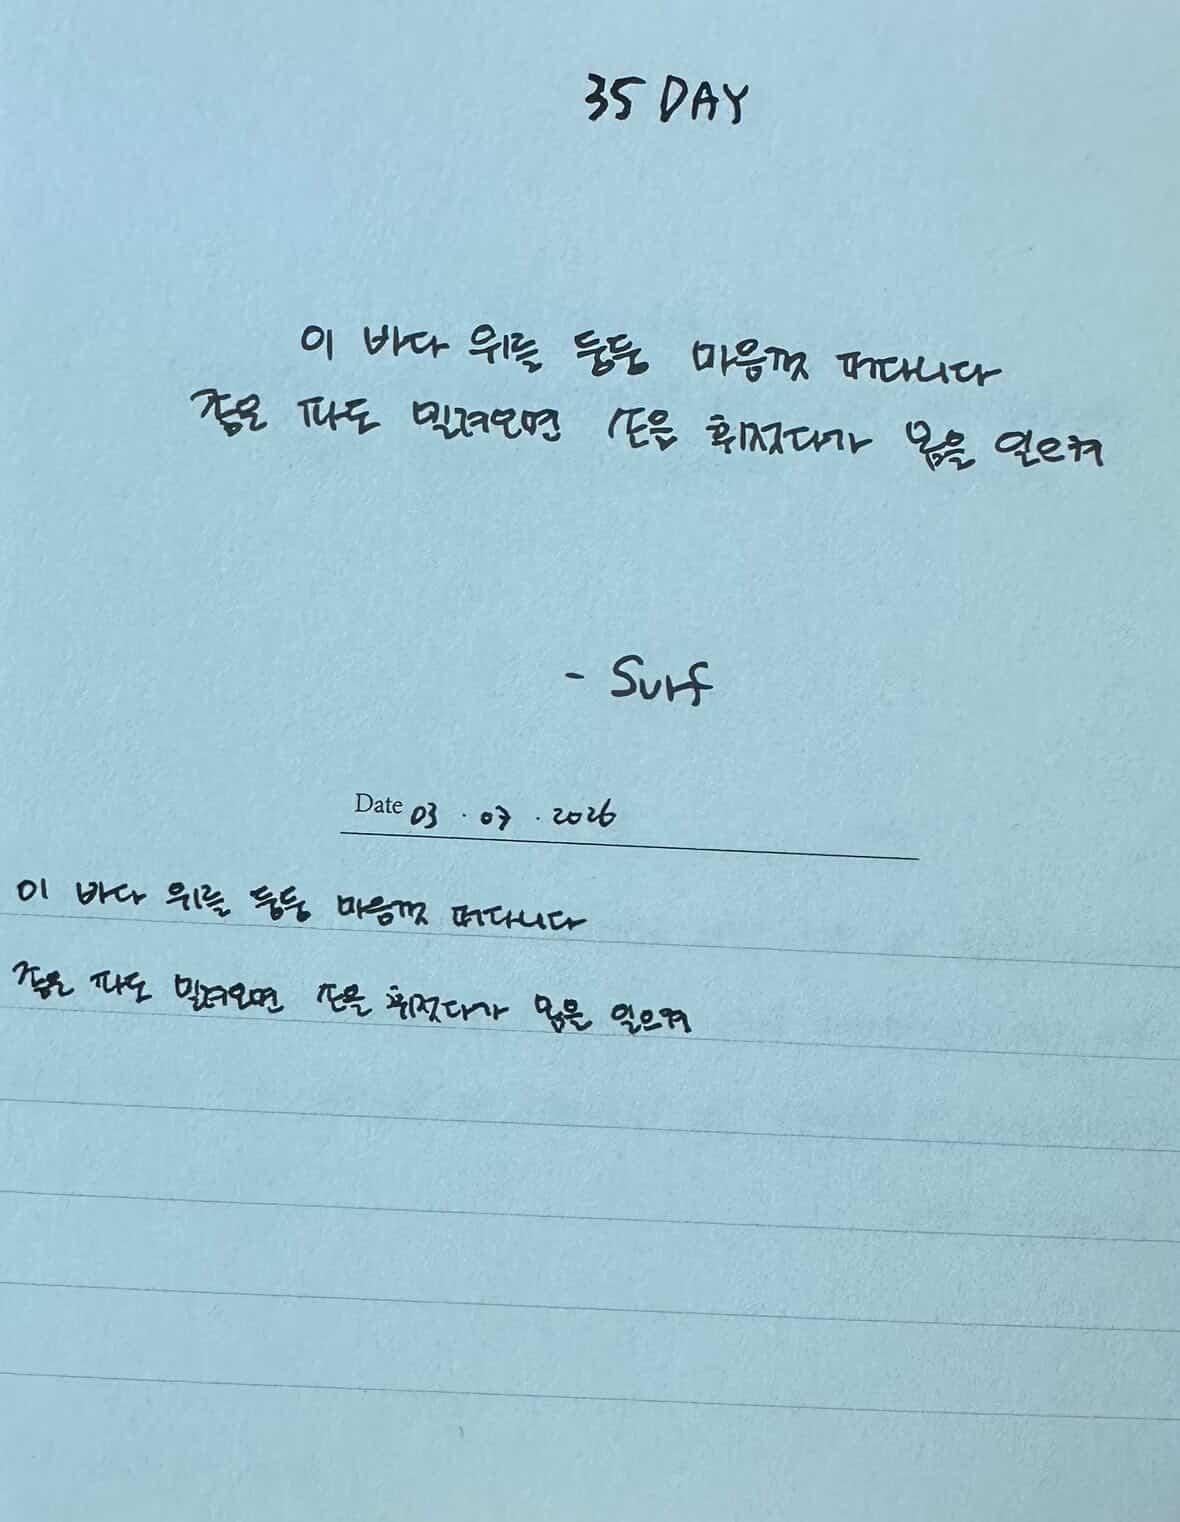 35 DAY
이 바다 위를 둥둥 마음껏 떠다니다
좋은 파도 밀려오면 손을 휘젓다가 몸을 일으켜
- Surf
Date 03 . 07 . 2026
이 바다 위를 둥둥 마음껏 떠다니다
좋은 파도 밀려오면 손을 휘젓다가 몸을 일으켜